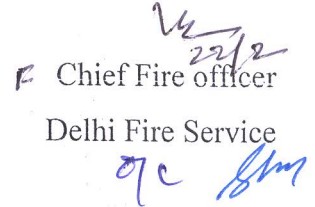 22/2
F Chief Fire officer
Delhi Fire Service
O/C